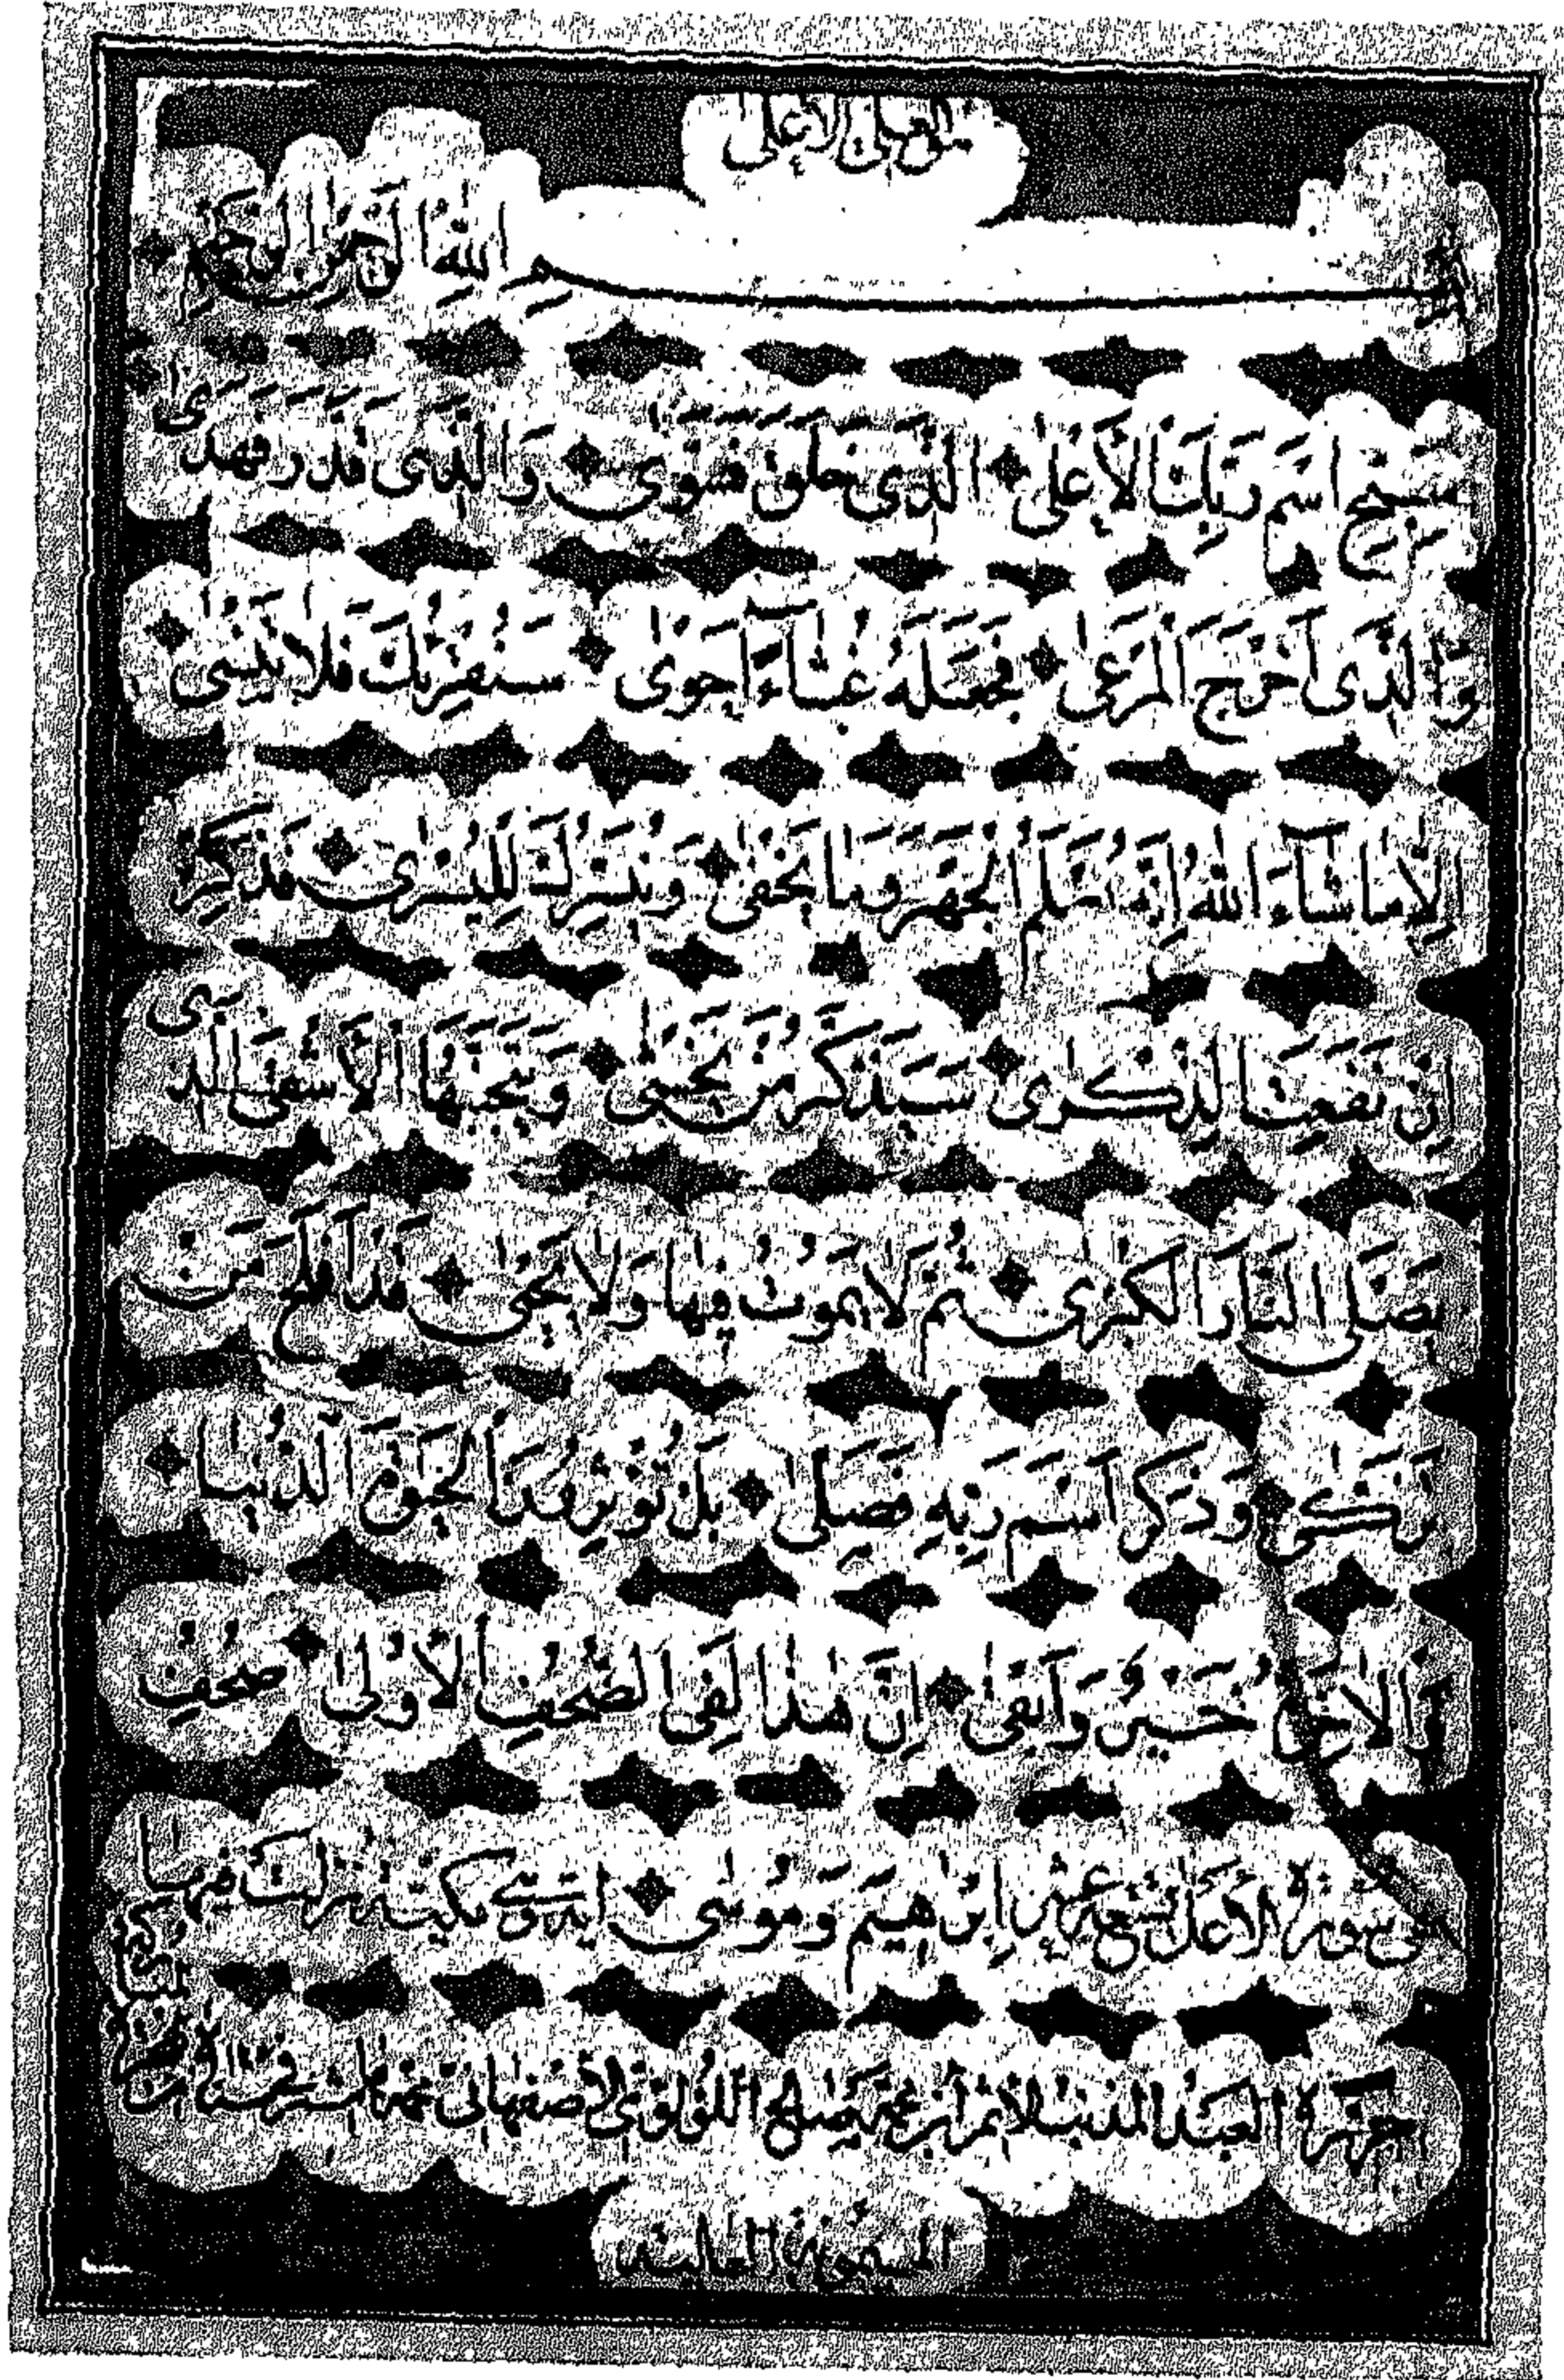 هو العلي الأعلى
بِسْمِ اللهِ الرَّحْمٰنِ الرَّحِيمِ
سَبِّحِ اسْمَ رَبِّكَ الْأَعْلَى الَّذِى خَلَقَ فَسَوّٰى وَالَّذِى قَدَّرَ فَهَدٰى
وَالَّذِى أَخْرَجَ الْمَرْعٰى فَجَعَلَهُ غُثَاءً أَحْوٰى سَنُقْرِئُكَ فَلَا تَنْسٰى
إِلَّا مَا شَاءَ اللهُ إِنَّهُ يَعْلَمُ الْجَهْرَ وَمَا يَخْفٰى وَنُيَسِّرُكَ لِلْيُسْرٰى فَذَكِّرْ
إِنْ نَفَعَتِ الذِّكْرٰى سَيَذَّكَّرُ مَنْ يَخْشٰى وَيَتَجَنَّبُهَا الْأَشْقَى الَّذِى
يَصْلَى النَّارَ الْكُبْرٰى ثُمَّ لَا يَمُوتُ فِيهَا وَلَا يَحْيٰى قَدْ أَفْلَحَ مَنْ
تَزَكّٰى وَذَكَرَ اسْمَ رَبِّهِ فَصَلّٰى بَلْ تُؤْثِرُونَ الْحَيٰوةَ الدُّنْيَا
وَالْآخِرَةُ خَيْرٌ وَأَبْقٰى إِنَّ هٰذَا لَفِى الصُّحُفِ الْأُولٰى صُحُفِ
سورة الأعلى تسع عشر إِبْرٰهِيمَ وَمُوسٰى آية مكية نزلت فيها
حرره العبد المذنب صالح اللؤلؤي الأصفهاني